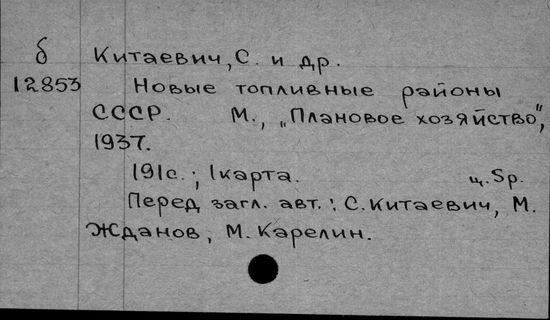 б Китаевич, С. и др.
12853 Новые топливные районы
СССР. М., „Плановое хозяйство",
1937.
191с.; 1карта. ц.5р.
Перед загл. авт.: С.Китаевич, М.
Жданов, М.Карелин.